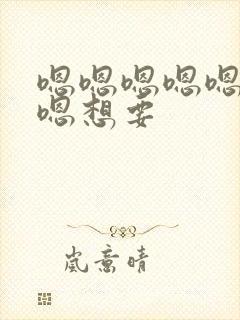 嗯嗯嗯嗯嗯
嗯想要
岚意晴